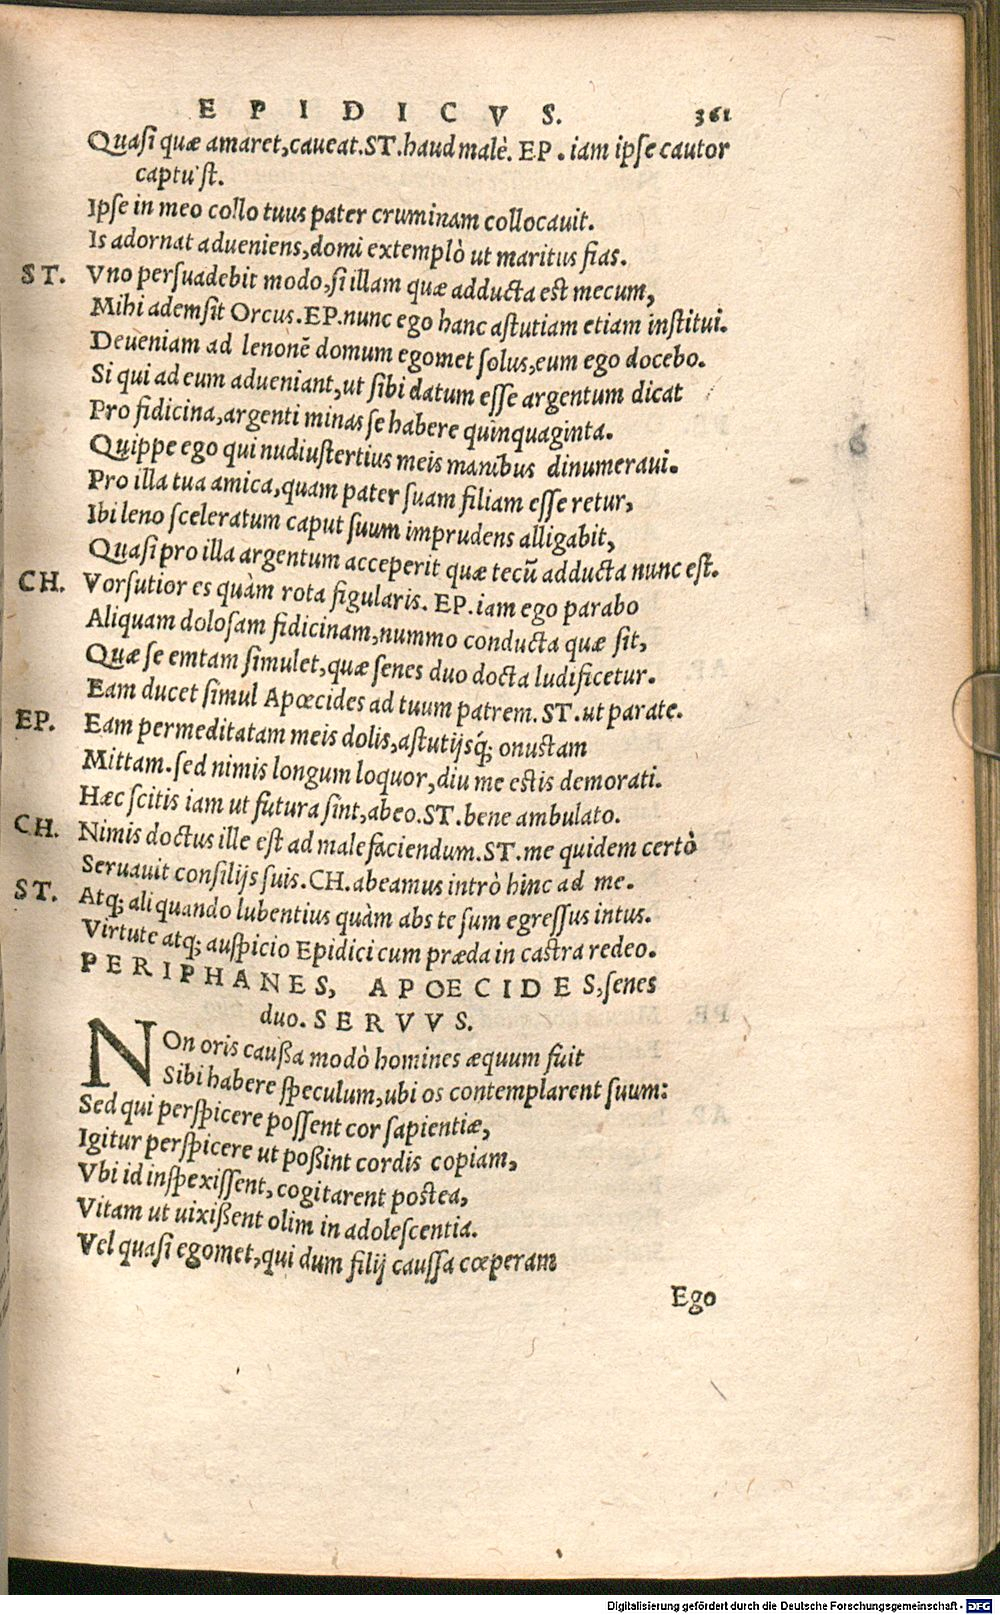 EPIDICVS. 361
Quaſi quæ amaret, caueat. ST. haud malè. EP. iam ipſe cautor
captu'ſt.
Ipſe in meo collo tuus pater cruminam collocauit.
Is adornat adueniens, domi extemplò ut maritus fias.
ST. Vno perſuadebit modo, ſi illam quæ adducta est mecum,
Mihi ademſit Orcus. EP. nunc ego hanc aſtutiam etiam inſtitui.
Deueniam ad lenonē domum egomet ſolus, eum ego docebo.
Si qui ad eum adueniant, ut ſibi datum eſſe argentum dicat
Pro fidicina, argenti minas ſe habere quinquaginta.
Quippe ego qui nudiuſtertius meis manibus dinumeraui.
Pro illa tua amica, quam pater ſuam filiam eſſe retur,
Ibi leno ſceleratum caput ſuum imprudens alligabit,
Quaſi pro illa argentum acceperit quæ tecū adducta nunc est.
CH. Vorſutior es quàm rota figularis. EP. iam ego parabo
Aliquam doloſam fidicinam, nummo conducta quæ ſit,
Quæ ſe emtam ſimulet, quæ ſenes duo docta ludificetur.
Eam ducet ſimul Apœcides ad tuum patrem. ST. ut parate.
EP. Eam permeditatam meis dolis, aſtutijsq́; onuſtam
Mittam. ſed nimis longum loquor, diu me estis demorati.
Hæc ſcitis iam ut futura ſint, abeo. ST. bene ambulato.
CH. Nimis doctus ille eſt ad malefaciendum. ST. me quidem certò
Seruauit conſilijs ſuis. CH. abeamus intrò hinc ad me.
ST. Atq; aliquando lubentius quàm abs te ſum egreſſus intus.
Virtute atq; auſpicio Epidici cum præda in caſtra redeo.
PERIPHANES, APOECIDES, ſenes
duo. SERVVS.
NOn oris cauſſa modò homines æquum fuit
Sibi habere ſpeculum, ubi os contemplarent ſuum:
Sed qui perſpicere poſſent cor ſapientiæ,
Igitur perſpicere ut poßint cordis copiam,
Vbi id inſpexiſſent, cogitarent poſtea,
Vitam ut uixißent olim in adoleſcentia.
Vel quaſi egomet, qui dum filij cauſſa cœperam
Ego
Digitalisierung gefördert durch die Deutsche Forschungsgemeinschaft - DFG